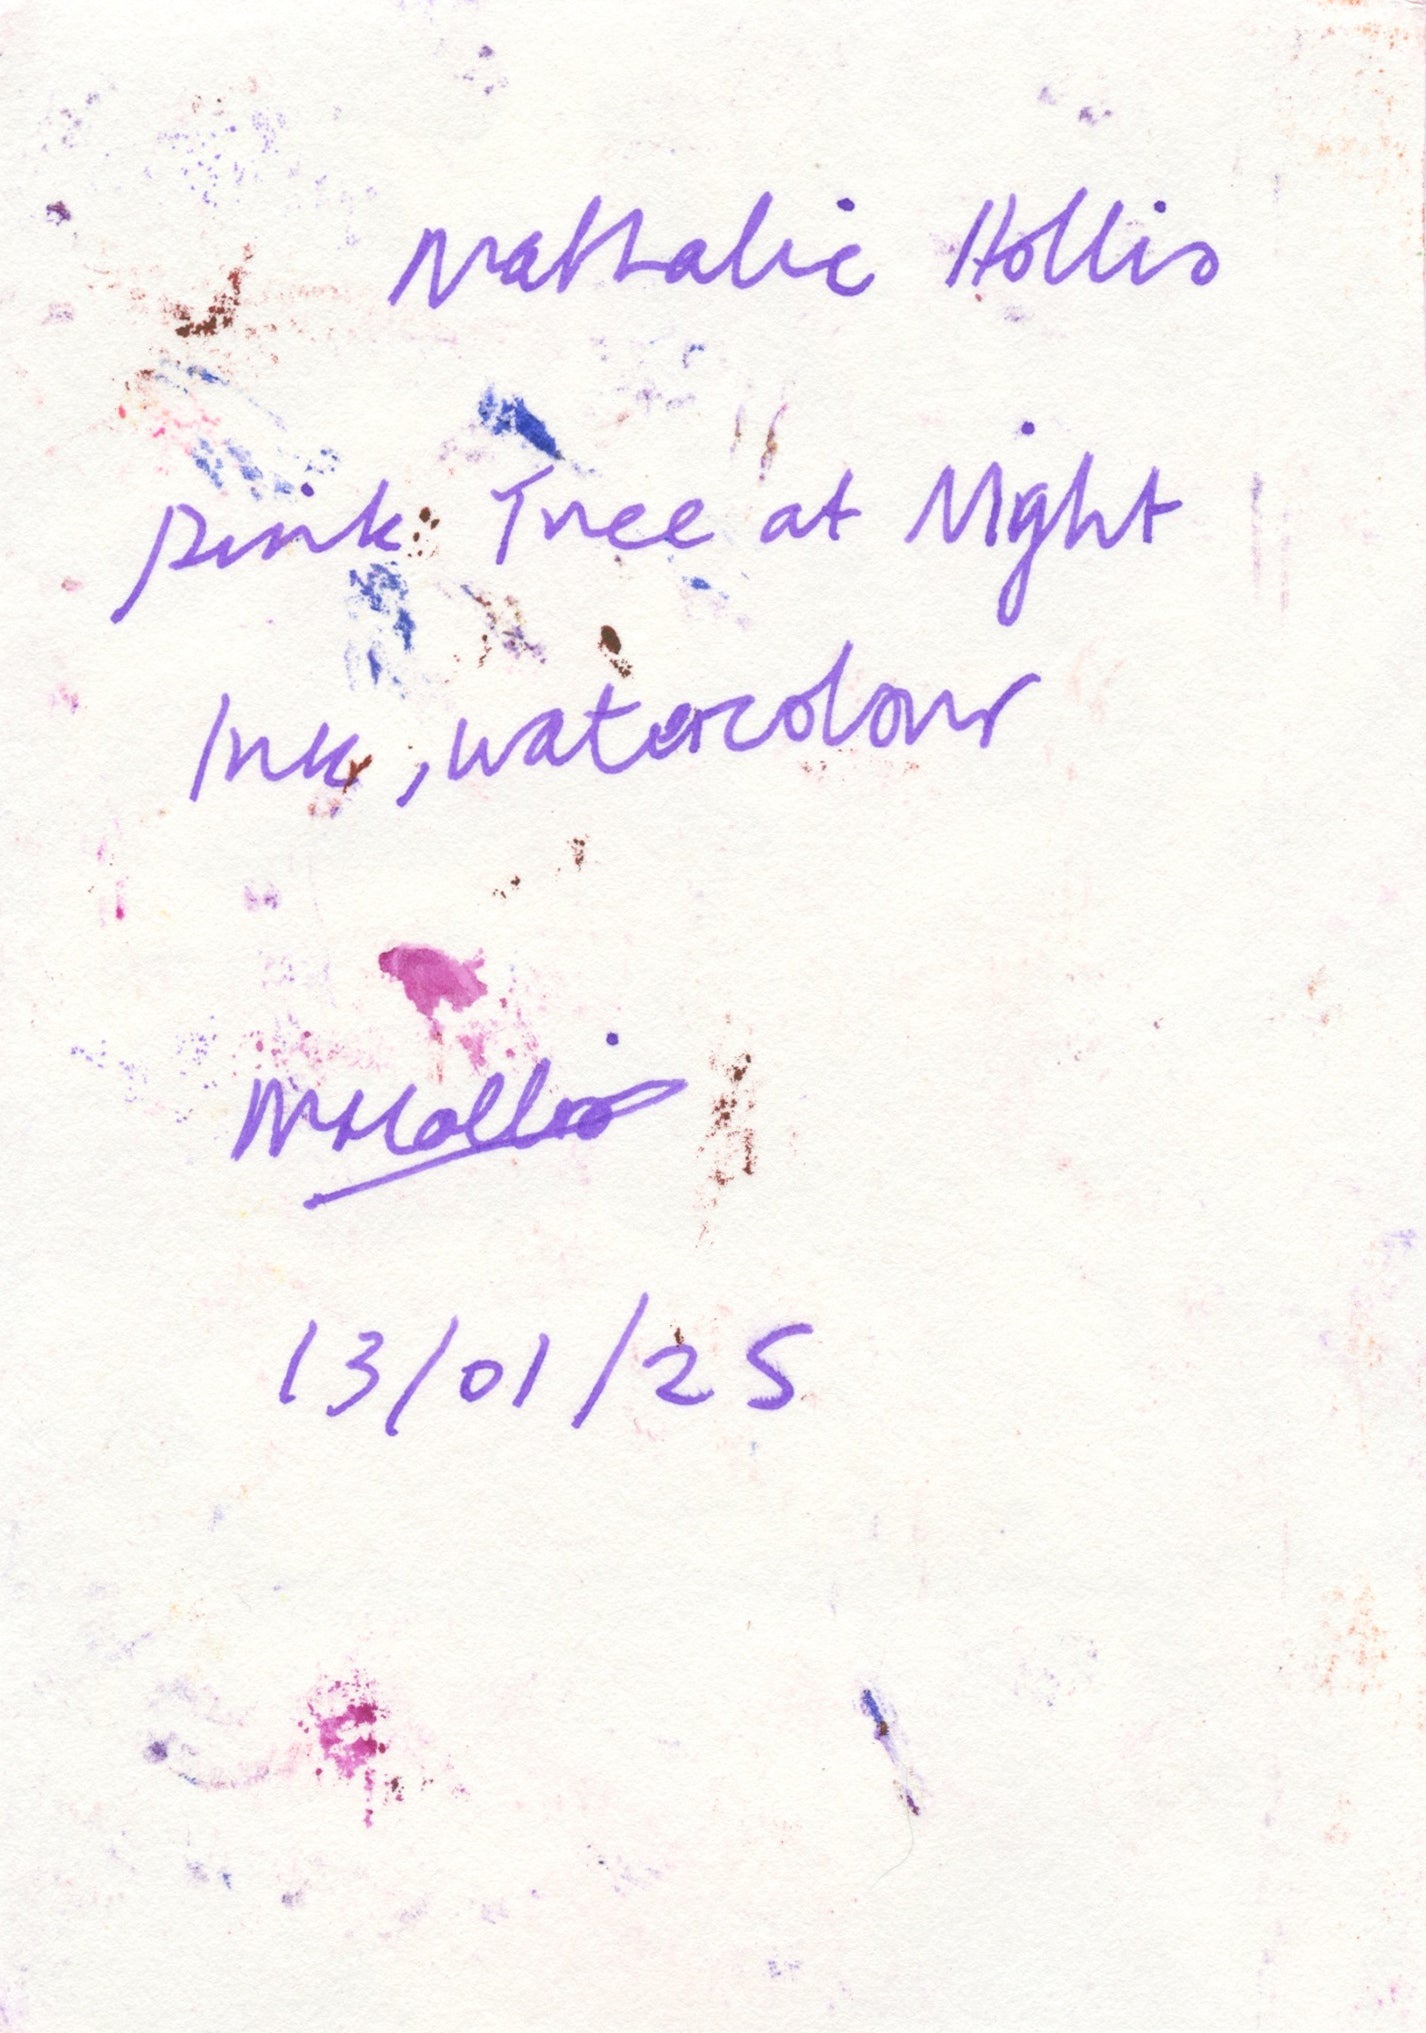 Nathalie Hollis
Pink Tree at Night
Ink, watercolour
NHollis
13/01/25